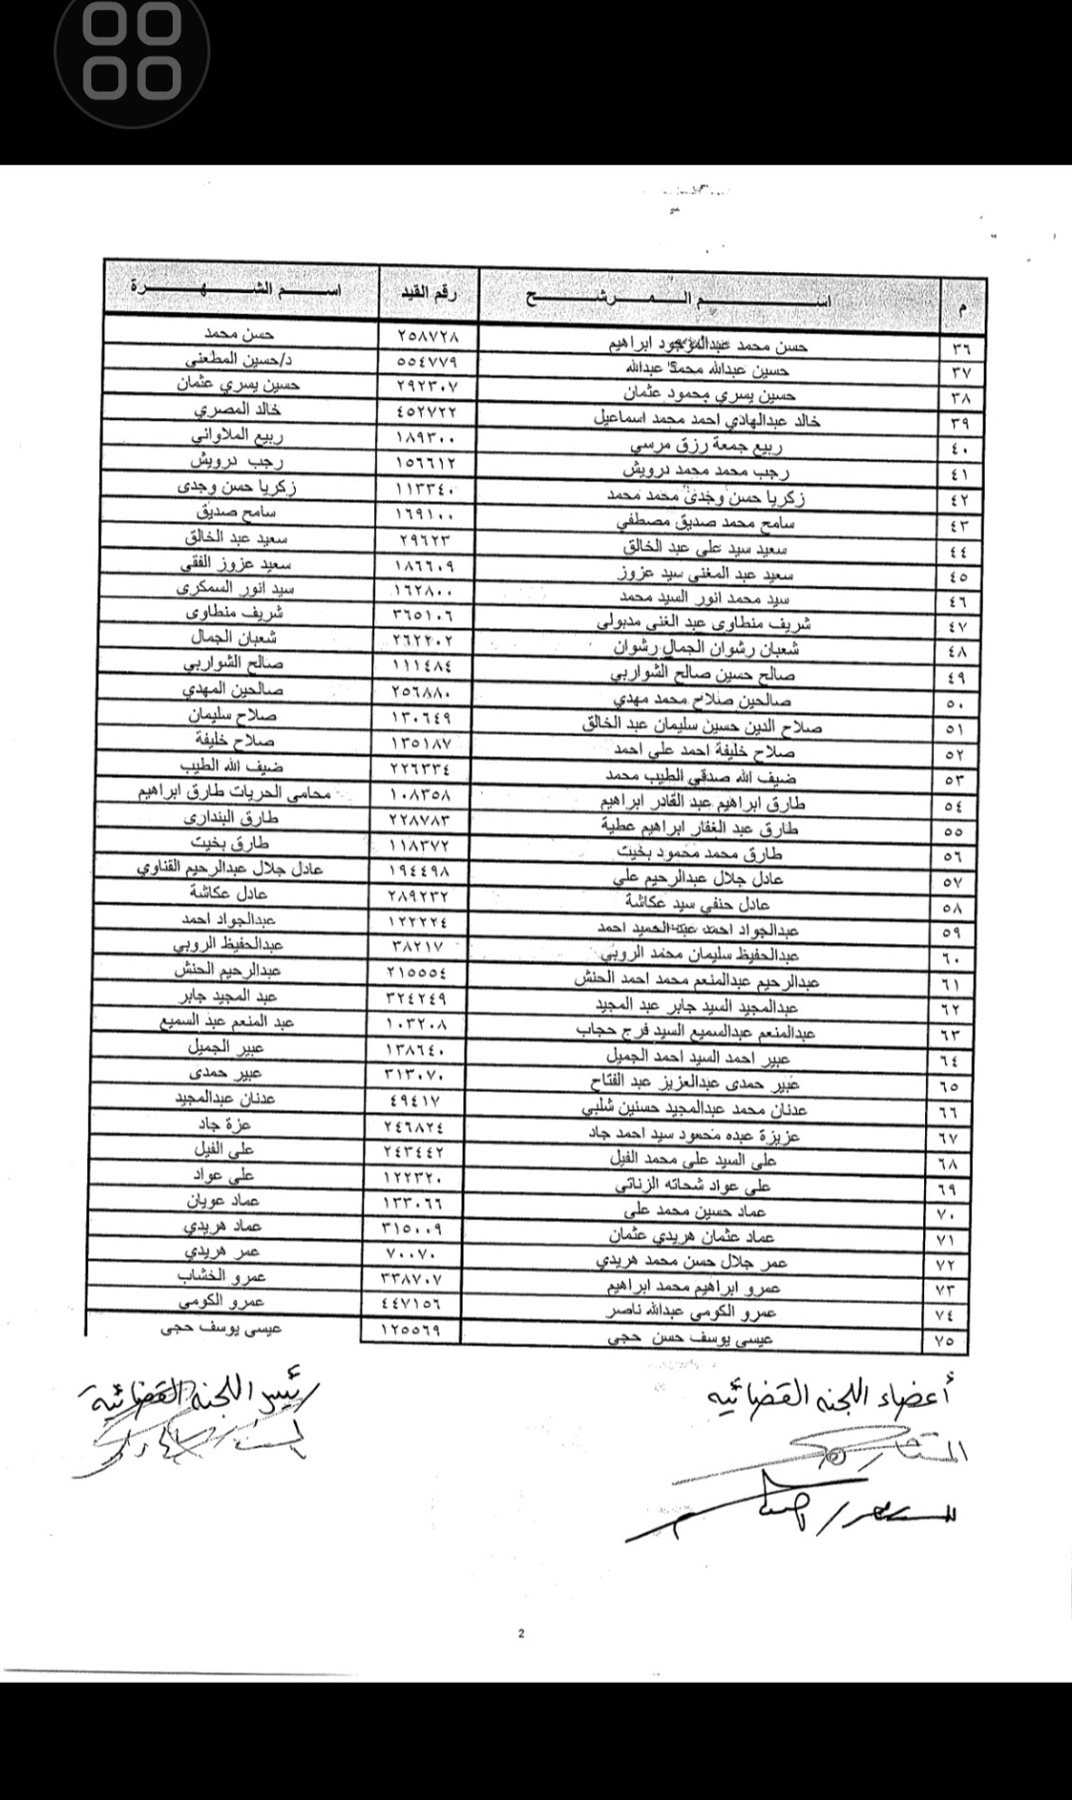 م اسم المرشح رقم القيد اسم الشهرة
٣٦ حسن محمد عبدالموجود ابراهيم ٢٥٨٧٢٨ حسن محمد
٣٧ حسين عبدالله محمد عبدالله ٥٥٤٧٧٩ د/حسين المطعنى
٣٨ حسين يسري محمود عثمان ٢٩٢٣٠٧ حسين يسري عثمان
٣٩ خالد عبدالهادي احمد محمد اسماعيل ٤٥٢٧٢٢ خالد المصري
٤٠ ربيع جمعة رزق مرسي ١٨٩٣٠٠ ربيع الملاواني
٤١ رجب محمد محمد درويش ١٥٦٦١٢ رجب درويش
٤٢ زكريا حسن وجدى محمد محمد ١١٣٣٤٠ زكريا حسن وجدى
٤٣ سامح محمد صديق مصطفي ١٦٩١٠٠ سامح صديق
٤٤ سعيد سيد على عبد الخالق ٢٩٦٢٣ سعيد عبد الخالق
٤٥ سعيد عبد المغنى سيد عزوز ١٨٦٦٠٩ سعيد عزوز الفقى
٤٦ سيد محمد انور السيد محمد ١٦٢٨٠٠ سيد انور السمكرى
٤٧ شريف منطاوى عبد الغنى مدبولى ٣٦٥١٠٦ شريف منطاوى
٤٨ شعبان رشوان الجمال رشوان ٢٦٢٢٠٢ شعبان الجمال
٤٩ صالح حسين صالح الشواربي ١١١٤٨٤ صالح الشواربي
٥٠ صالحين صلاح محمد مهدي ٢٥٦٨٨٠ صالحين المهدي
٥١ صلاح الدين حسين سليمان عبد الخالق ١٣٠٦٤٩ صلاح سليمان
٥٢ صلاح خليفة احمد على احمد ١٣٥١٨٧ صلاح خليفة
٥٣ ضيف الله صدقي الطيب محمد ٢٢٦٣٣٤ ضيف الله الطيب
٥٤ طارق ابراهيم عبد القادر ابراهيم ١٠٨٣٥٨ محامى الحريات طارق ابراهيم
٥٥ طارق عبد الغفار ابراهيم عطية ٢٢٨٧٨٣ طارق البندارى
٥٦ طارق محمد محمود بخيت ١١٨٣٧٢ طارق بخيت
٥٧ عادل جلال عبدالرحيم علي ١٩٤٤٩٨ عادل جلال عبدالرحيم القناوي
٥٨ عادل حنفي سيد عكاشة ٢٨٩٢٣٢ عادل عكاشة
٥٩ عبدالجواد احمد عبدالحميد احمد ١٢٢٢٢٤ عبدالجواد احمد
٦٠ عبدالحفيظ سليمان محمد الروبي ٣٨٢١٧ عبدالحفيظ الروبي
٦١ عبدالرحيم عبدالمنعم محمد احمد الحنش ٢١٥٥٥٤ عبدالرحيم الحنش
٦٢ عبدالمجيد السيد جابر عبد المجيد ٣٢٤٢٤٩ عبد المجيد جابر
٦٣ عبدالمنعم عبدالسميع السيد فرج حجاب ١٠٣٢٠٨ عبد المنعم عبد السميع
٦٤ عبير احمد السيد احمد الجميل ١٣٨٦٤٠ عبير الجميل
٦٥ عبير حمدى عبدالعزيز عبد الفتاح ٣١٣٠٧٠ عبير حمدى
٦٦ عدنان محمد عبدالمجيد حسنين شلبي ٤٩٤١٧ عدنان عبدالمجيد
٦٧ عزيزة عبده محمود سيد احمد جاد ٢٤٦٨٢٤ عزة جاد
٦٨ على السيد على محمد الفيل ٢٤٣٤٤٢ على الفيل
٦٩ على عواد شحاته الزناتى ١٢٢٣٢٠ على عواد
٧٠ عماد حسين محمد على ١٣٣٠٦٦ عماد عويان
٧١ عماد عثمان هريدي عثمان ٣١٥٠٠٩ عماد هريدي
٧٢ عمر جلال حسن محمد هريدي ٧٠٠٧٠ عمر هريدي
٧٣ عمرو ابراهيم محمد ابراهيم ٣٣٨٧٠٧ عمرو الخشاب
٧٤ عمرو الكومى عبدالله ناصر ٤٤٧١٥٦ عمرو الكومى
٧٥ عيسى يوسف حسن حجى ١٢٥٥٦٩ عيسى يوسف حجى
أعضاء اللجنه القضائيه رئيس اللجنة القضائية
2